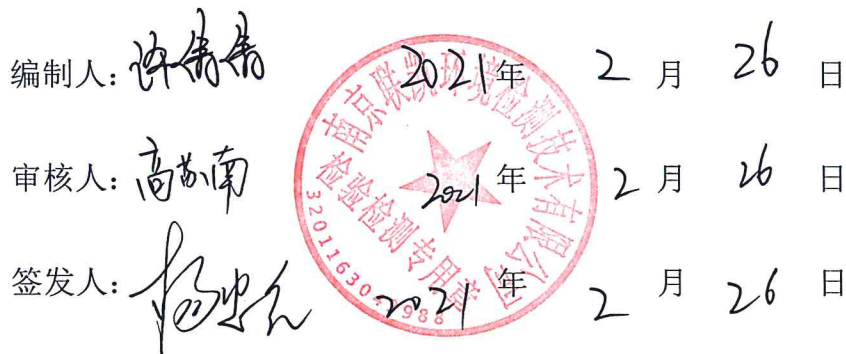 编制人：许倩倩 2021年 2 月 26 日
审核人：高苏南 2021 年 2 月 26 日
签发人： 2021 年 2 月 26 日
南京联凯环境检测技术有限公司
检验检测专用章